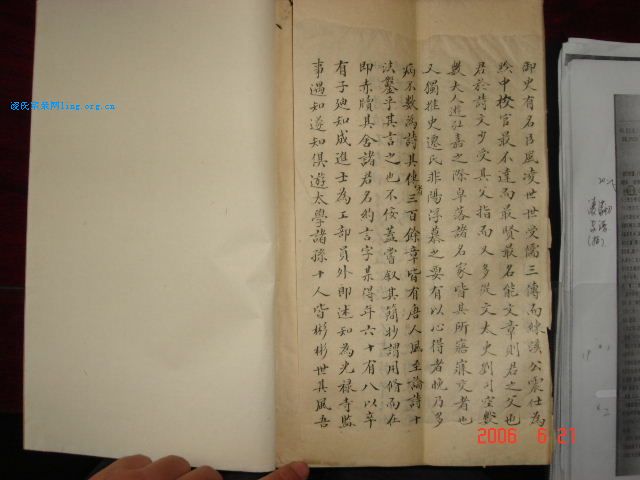 御史有名臣風凌世世受儒三傳而練溪公震仕為
黔中校官最不達而最賢最名能文章則君之父也
君於詩文少受其父指而又多從文太史劉司空數
數大人遊江嘉之際卓落諸名家皆其所寤寐交者也
又獨推史遷氏非陽浮慕之要有以心得者晚乃多
病不數為詩其佳者三百餘章皆有唐人風至論詩十
法鑿乎其言之也不佞蓋嘗叙其簡抄謂用脩而在
即赤牘其舍諸君名約言字某得年六十有八以卒
有子廸知成進士為工部員外即述知為光禄寺監
事遇知遂知俱遊太學諸孫十人皆彬彬世其風吾
凌氏家乘网ling.org.cn
2006 6 21